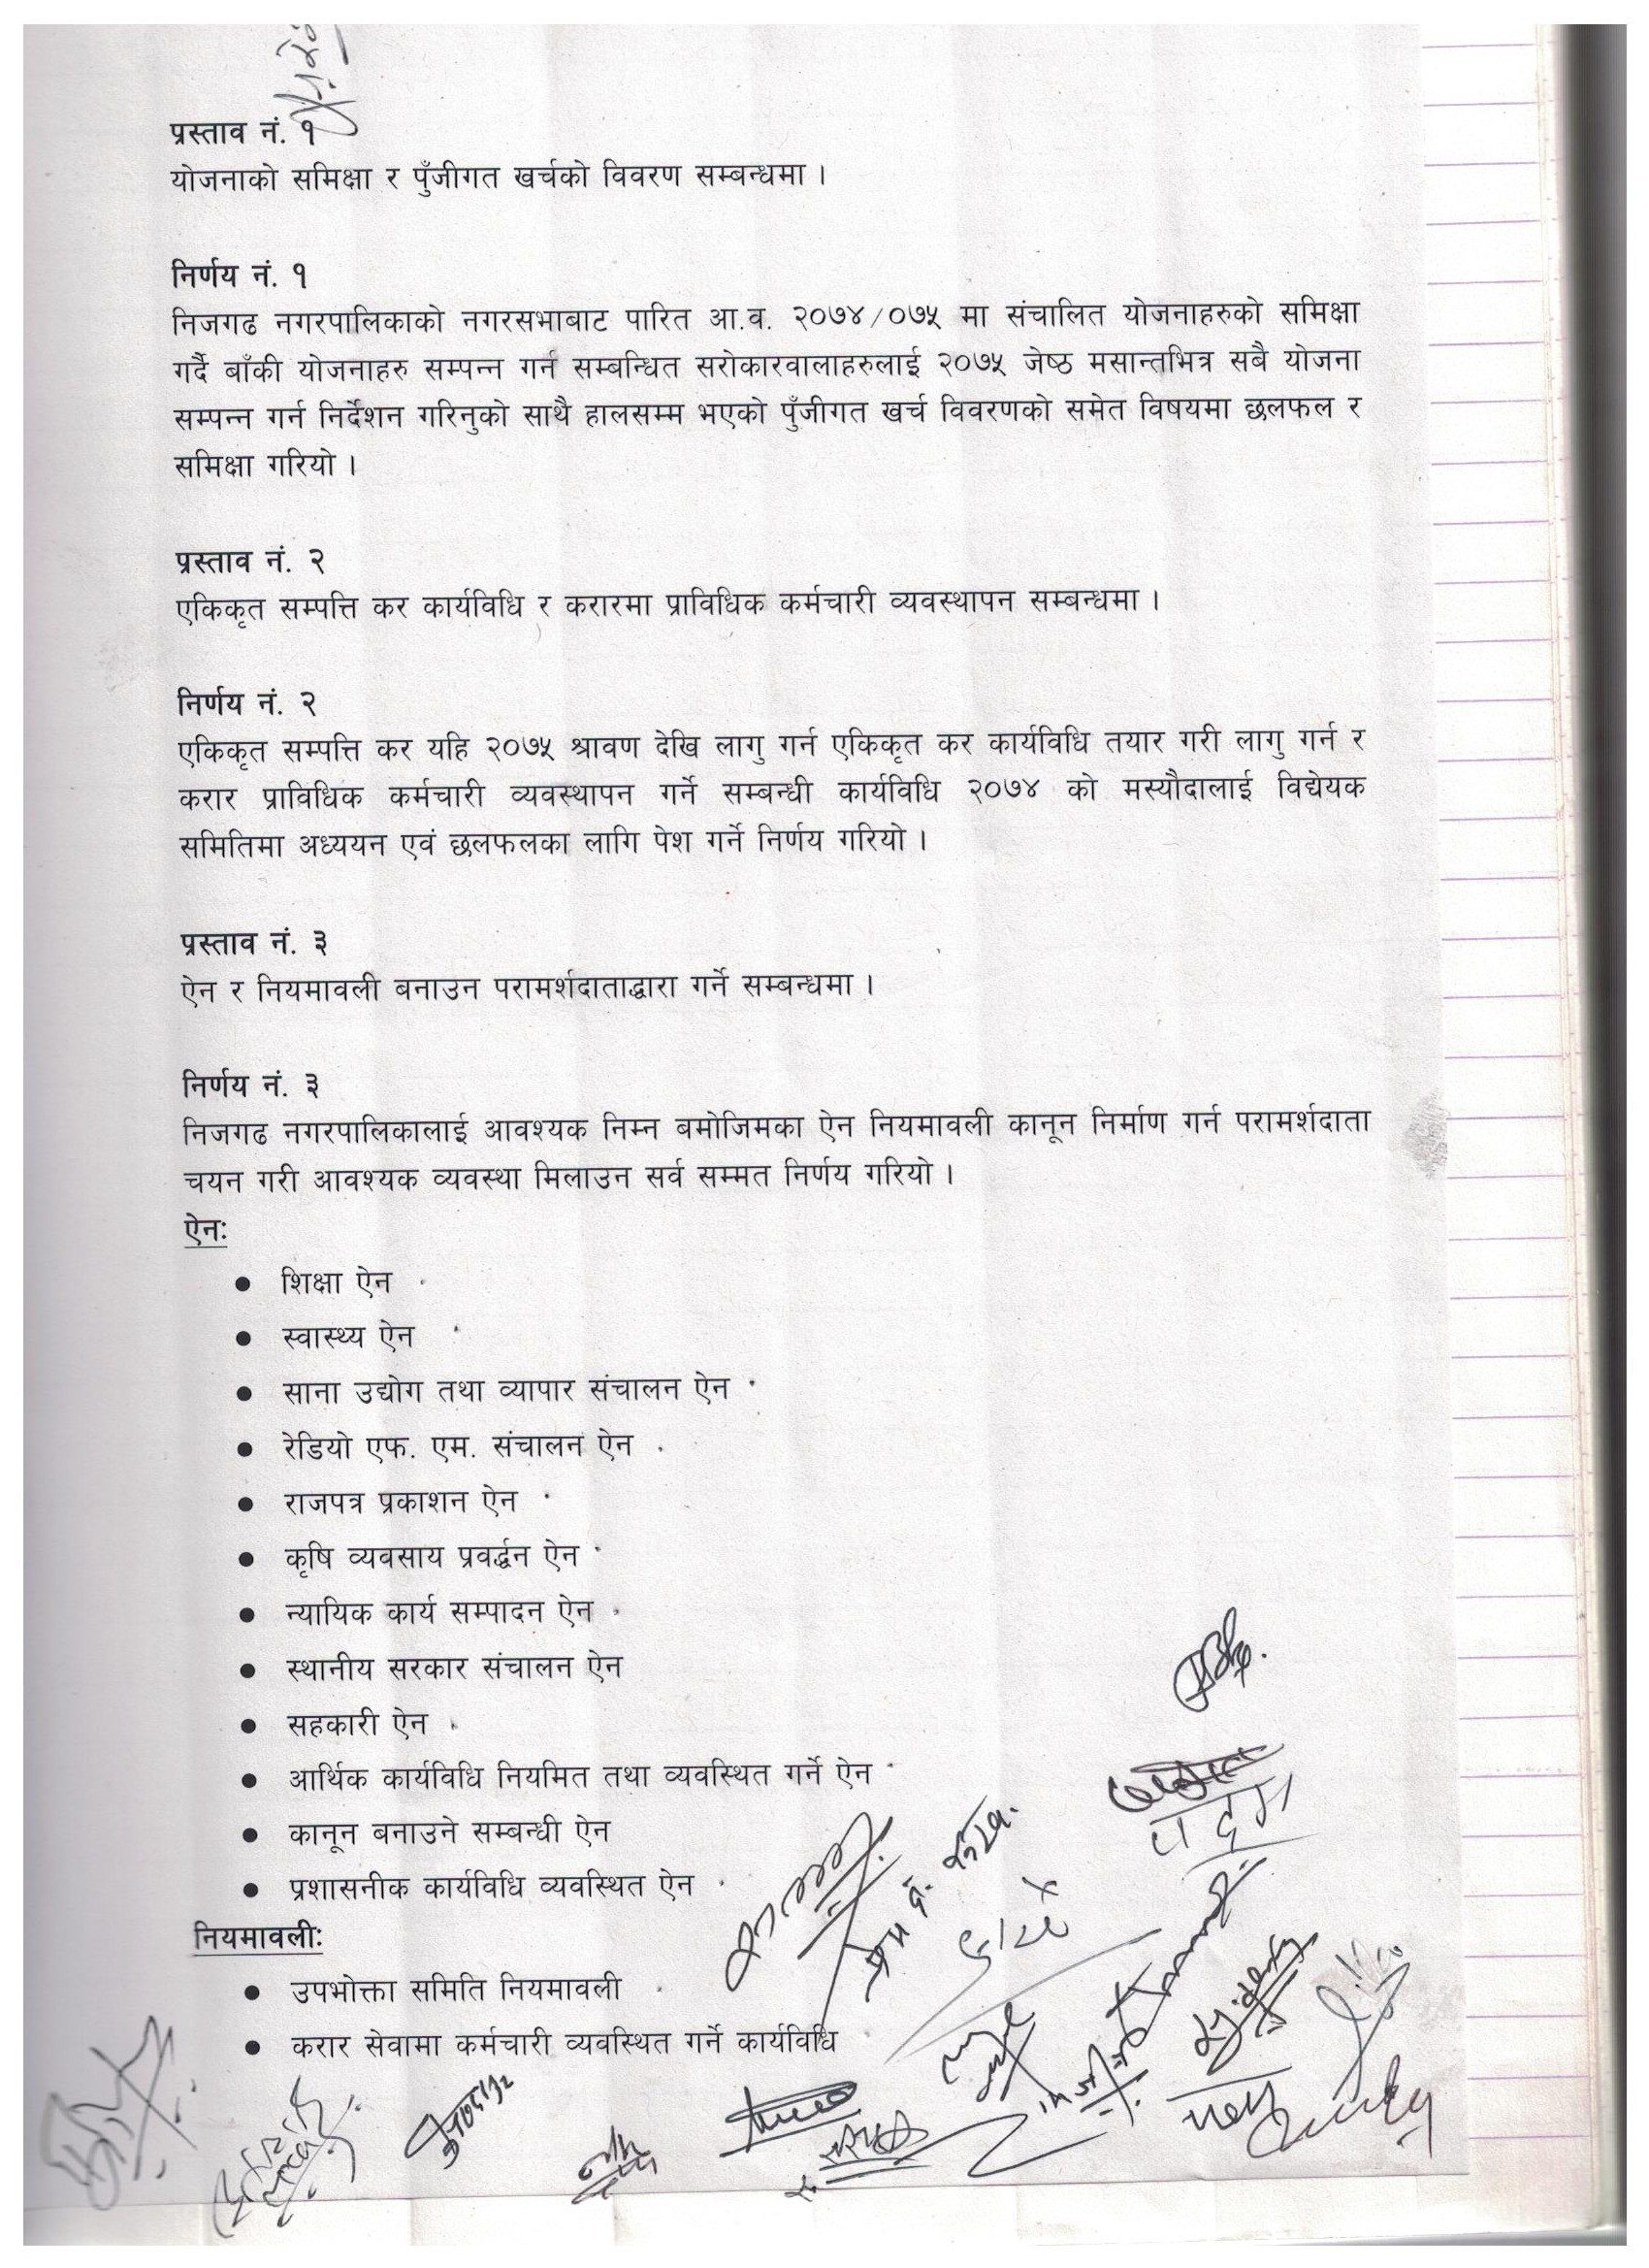 प्रस्ताव नं. १
योजनाको समिक्षा र पुँजीगत खर्चको विवरण सम्बन्धमा ।
निर्णय नं. १
निजगढ नगरपालिकाको नगरसभाबाट पारित आ.व. २०७४/०७५ मा संचालित योजनाहरुको समिक्षा
गर्दै बाँकी योजनाहरु सम्पन्न गर्न सम्बन्धित सरोकारवालाहरुलाई २०७५ जेष्ठ मसान्तभित्र सबै योजना
सम्पन्न गर्न निर्देशन गरिनुको साथै हालसम्म भएको पुँजीगत खर्च विवरणको समेत विषयमा छलफल र
समिक्षा गरियो ।
प्रस्ताव नं. २
एकिकृत सम्पत्ति कर कार्यविधि र करारमा प्राविधिक कर्मचारी व्यवस्थापन सम्बन्धमा ।
निर्णय नं. २
एकिकृत सम्पत्ति कर यहि २०७५ श्रावण देखि लागु गर्न एकिकृत कर कार्यविधि तयार गरी लागु गर्न र
करार प्राविधिक कर्मचारी व्यवस्थापन गर्ने सम्बन्धी कार्यविधि २०७४ को मस्यौदालाई विद्येयक
समितिमा अध्ययन एवं छलफलका लागि पेश गर्ने निर्णय गरियो ।
प्रस्ताव नं. ३
ऐन र नियमावली बनाउन परामर्शदाताद्धारा गर्ने सम्बन्धमा ।
निर्णय नं. ३
निजगढ नगरपालिकालाई आवश्यक निम्न बमोजिमका ऐन नियमावली कानून निर्माण गर्न परामर्शदाता
चयन गरी आवश्यक व्यवस्था मिलाउन सर्व सम्मत निर्णय गरियो ।
ऐनः
● शिक्षा ऐन
● स्वास्थ्य ऐन
● साना उद्योग तथा व्यापार संचालन ऐन
● रेडियो एफ. एम. संचालन ऐन
● राजपत्र प्रकाशन ऐन
● कृषि व्यवसाय प्रवर्द्धन ऐन
● न्यायिक कार्य सम्पादन ऐन
● स्थानीय सरकार संचालन ऐन
● सहकारी ऐन
● आर्थिक कार्यविधि नियमित तथा व्यवस्थित गर्ने ऐन
● कानून बनाउने सम्बन्धी ऐन
● प्रशासनीक कार्यविधि व्यवस्थित ऐन
नियमावलीः
● उपभोक्ता समिति नियमावली
● करार सेवामा कर्मचारी व्यवस्थित गर्ने कार्यविधि